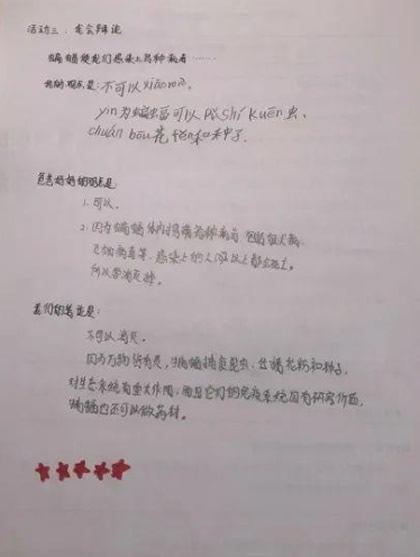 活动三：家会辩论
蝙蝠使我们感染上各种病毒……
我的观点是：不可以xiāo灭。
yin为蝙蝠可以PU shí kuēn虫、
chuán bou花粉和种子.
爸爸妈妈的观点是
1.可以。
2.因为蝙蝠体内携带着各种病毒
，感染上的人
所以要消灭掉。
我们的结论是：
不可以消灭。
因为万物皆有灵，蝙蝠捕食昆虫，传播花粉和种子，
对生态系统有重大作用，而且它们的免疫系统具有研究价值，
蝙蝠也还可以做药材。